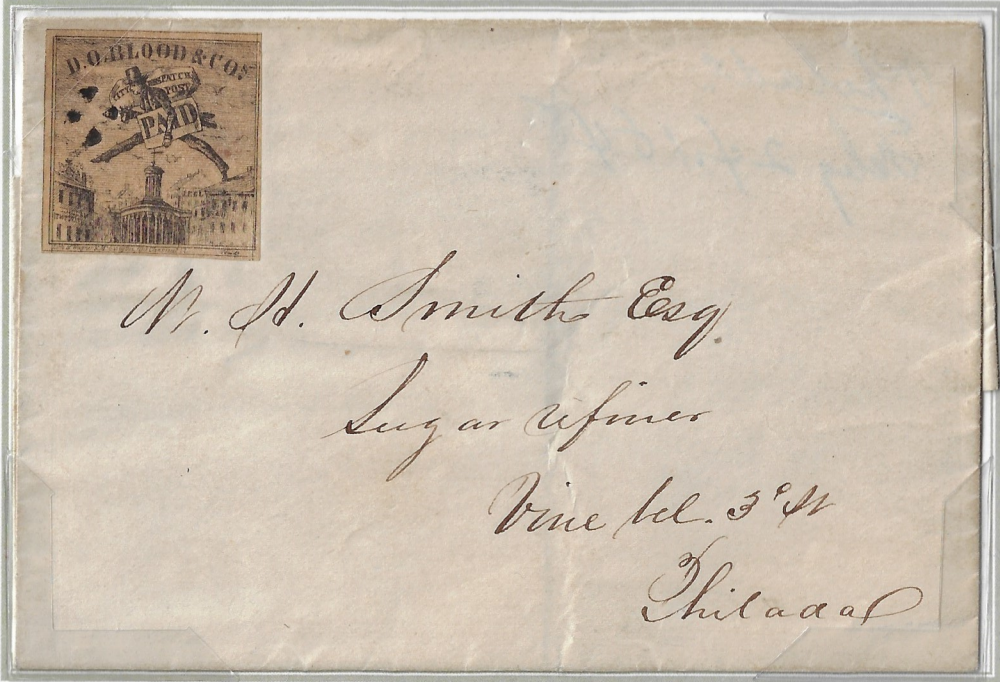 D.O. BLOOD & COs
CITY DESPATCH
POST
PAID
N. H. Smith Esq
Sugar refiner
Vine bel. 3d St
Philada